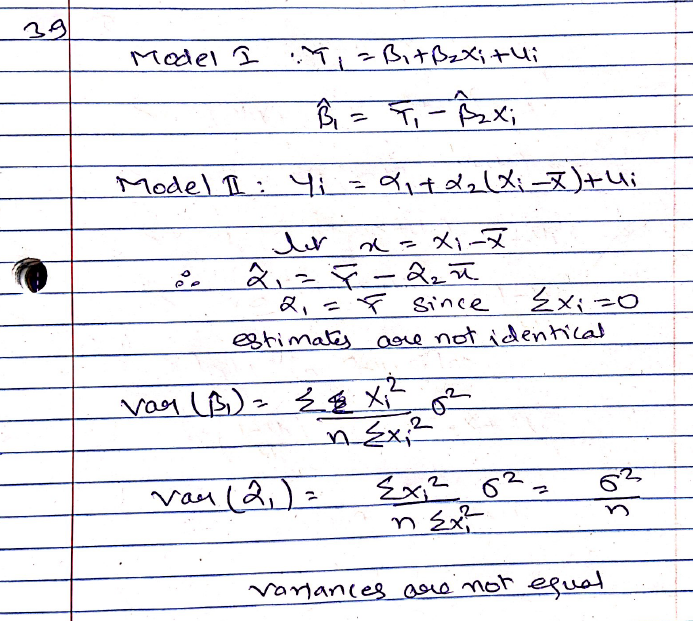 39
Model I : Y₁ = β₁+β₂Xi+ui
β̂₁ = Ȳ₁ - β̂₂Xi
Model II : Yi = α₁ + α₂(Xi - X̄)+ui
let x = X₁ - X̄
∴ α̂₁ = Ȳ - α̂₂x̄
α̂₁ = Ȳ since Σxi = 0
estimates are not identical
var (β̂₁) = ΣXi²/nΣxi² σ²
var (α̂₁) = Σxi²/nΣxi² σ² = σ²/n
variances are not equal